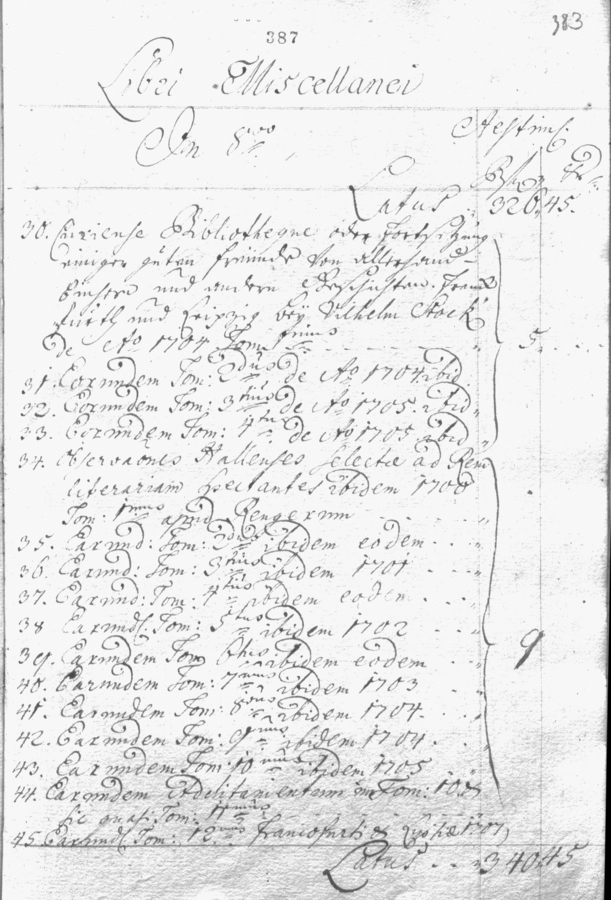 383
387
Libri Miscellanei
In 8vo
Aestim.
Latus 326.45.
30. Curiense Bibliotheque oder fortsetzung
einiger guten freunde von allerhand
büchern und andern Geschichten. Franck
furth und Leipzig bey Vilhelm Stock
de Ao 1704 Tom: 1mus 5.
31. Eorundem Tom: 2dus de Ao 1704. ibid
32. Eorundem Tom: 3tius de Ao 1705. ibid
33. Eorundem Tom: 4tus de Ao 1705 ibid
34. Observaones Hallenses Selectæ ad Rem
literariam spectantes ibidem 1700
Tom: 1mus apud Rengerum
35. Earund: Tom: 2dus ibidem eodem
36. Earund: Tom: 3tius ibidem 1701
37. Earund: Tom: 4tus ibidem eodem
38 Earund. Tom: 5tus ibidem 1702
39. Earundem Tom 6tus ibidem eodem 9
40. Earundem Tom: 7mus ibidem 1703
41. Earundem Tom: 8vus ibidem 1704.
42. Earundem Tom: 9nus ibidem 1704.
43. Earundem Tom: 10mus ibidem 1705
44. Earundem Additamentum in Tom: 10.
sic quasi Tom: 11mus
45. Earund. Tom: 12mus francofurti & Lipsiæ 1707
Latus 340.45